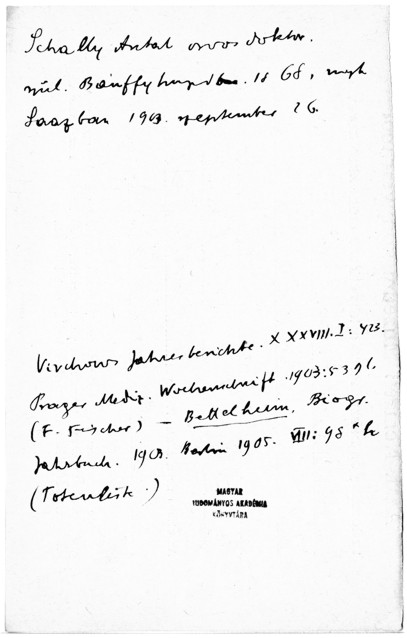 Schally Antal orvos doktor.
szül. Bánffyhunyad. 1868, megh
Saazban 1903. szeptember 26.
Virchows Jahresberichte. XXXVIII. I: 423.
Prager Mediz. Wochenschrift. 1903: 539 l.
(F. Fischer) — Bettelheim, Biogr.
Jahrbuch. 1903. Berlin 1905. VIII: 98 * h
(Totenliste.)
MAGYAR
TUDOMÁNYOS AKADÉMIA
KÖNYVTÁRA